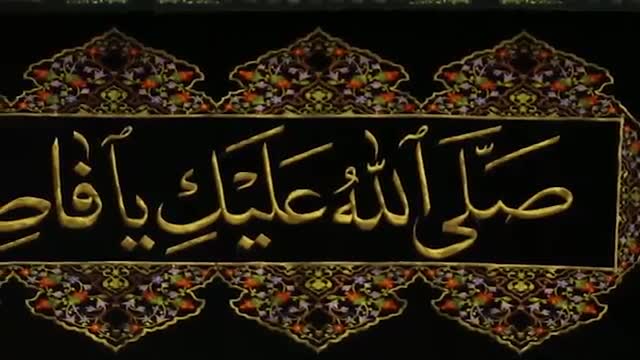 صَلَّى ٱللهُ عَلَيْكِ يٰٓا فٰاطِ